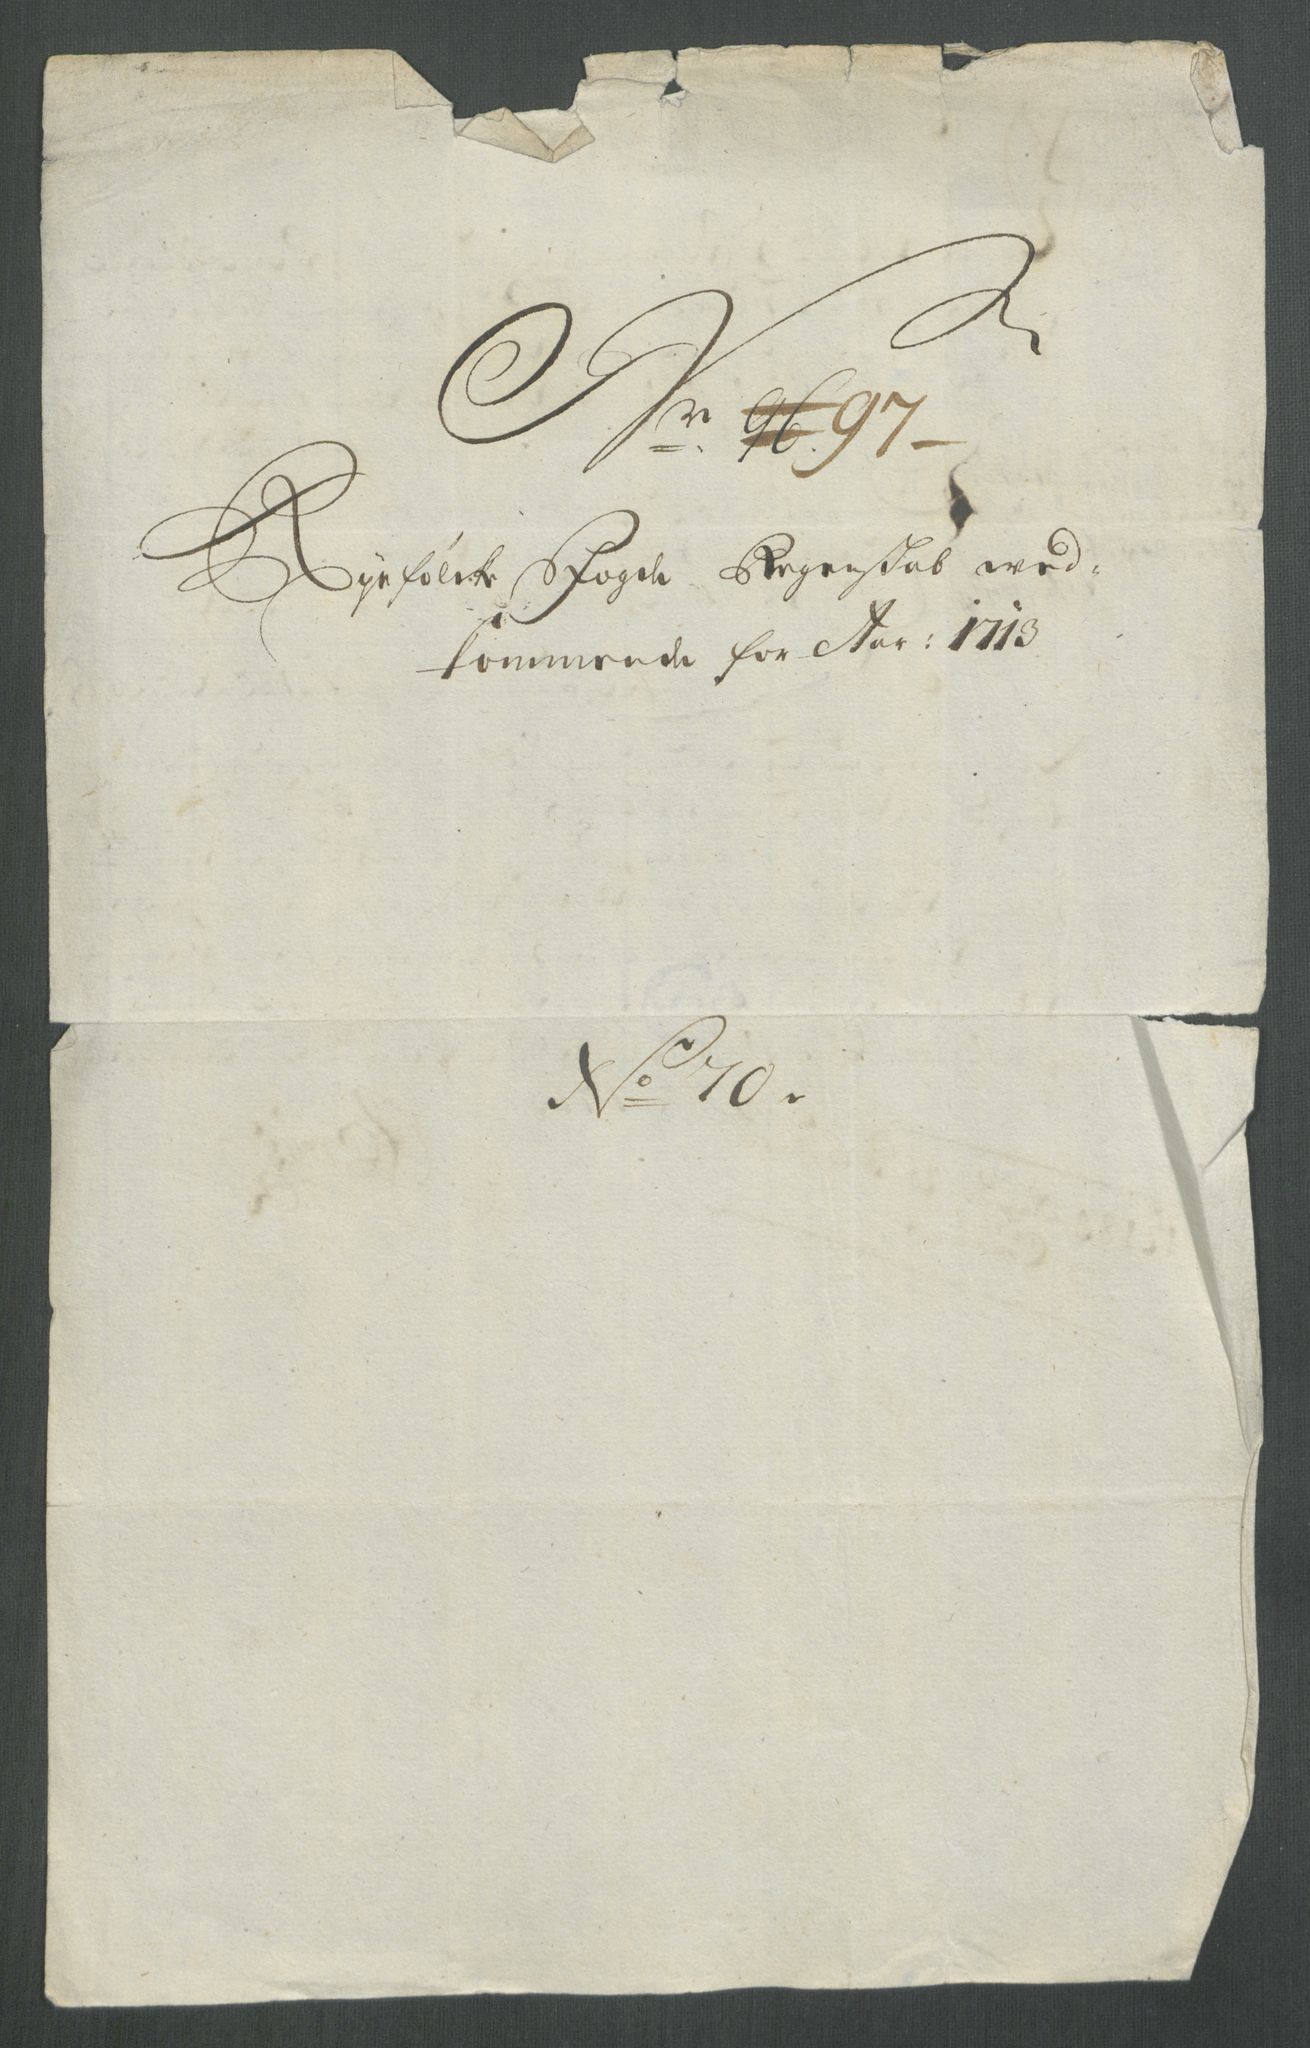 Nr. 96. 97
Ryefølcke Fogde Regenskab wed-
kommende for Aar: 1713
No 70.